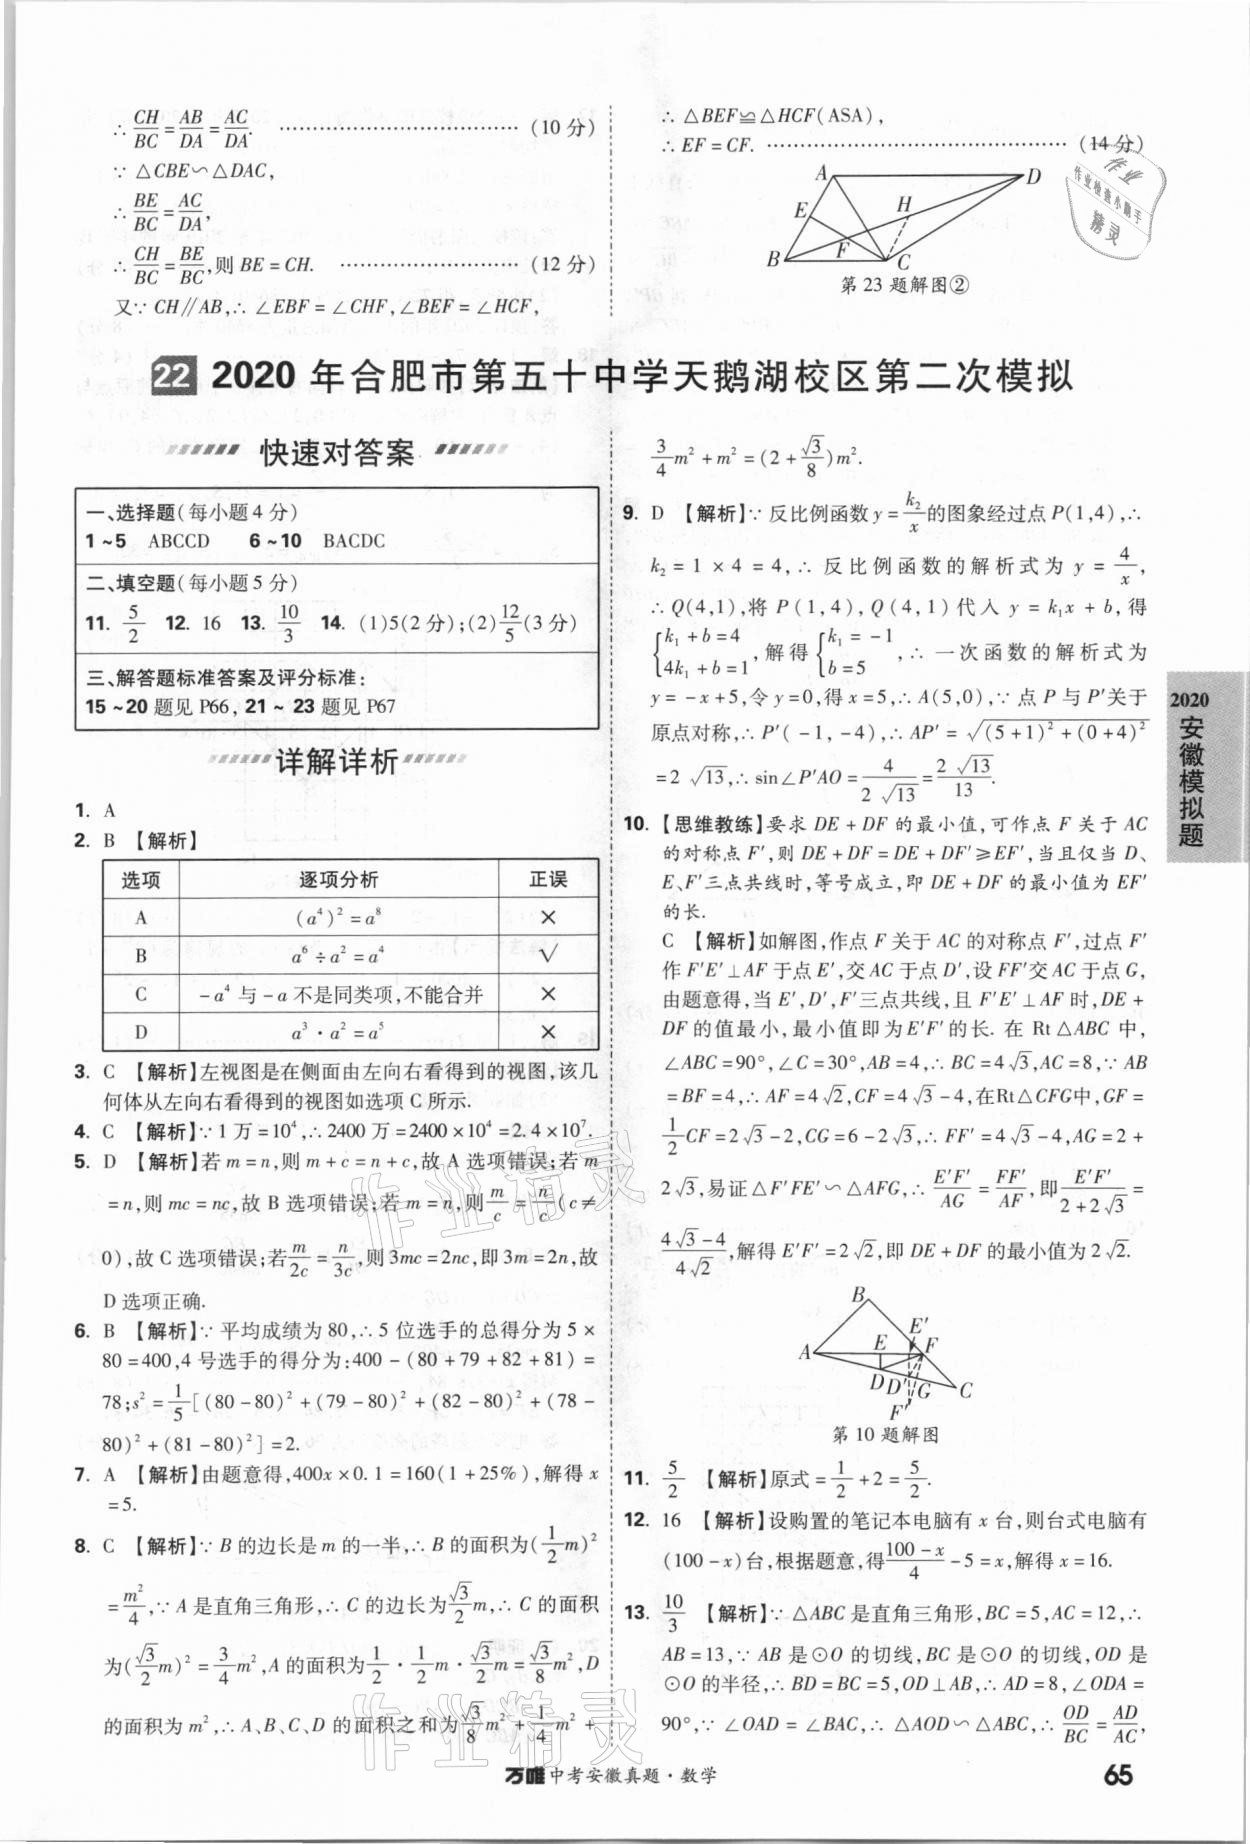 ∴ CH/BC = AB/DA = AC/DA. ………………………… (10 分)
∵ △CBE∽△DAC,
∴ BE/BC = AC/DA,
∴ CH/BC = BE/BC, 则 BE = CH. ………………… (12 分)
又∵ CH∥AB,∴ ∠EBF = ∠CHF,∠BEF = ∠HCF,
∴ △BEF≌△HCF(ASA),
∴ EF = CF. ……………………………… (14 分)
A D E H B F C
第 23 题解图②
作业
作业检查小助手
精灵
22 2020 年合肥市第五十中学天鹅湖校区第二次模拟
快速对答案
一、选择题(每小题 4 分)
1~5 ABCCD 6~10 BACDC
二、填空题(每小题 5 分)
11. 5/2 12. 16 13. 10/3 14. (1)5(2 分);(2)12/5(3 分)
三、解答题标准答案及评分标准:
15~20 题见 P66,21~23 题见 P67
详解详析
1. A
2. B 【解析】
选项 逐项分析 正误
A (a⁴)² = a⁸ ×
B a⁶ ÷ a² = a⁴ √
C -a⁴ 与 -a 不是同类项,不能合并 ×
D a³ · a² = a⁵ ×
3. C 【解析】左视图是在侧面由左向右看得到的视图,该几
何体从左向右看得到的视图如选项 C 所示.
4. C 【解析】∵ 1 万 = 10⁴,∴ 2400 万 = 2400 × 10⁴ = 2.4 × 10⁷.
5. D 【解析】若 m = n,则 m + c = n + c,故 A 选项错误;若 m
= n,则 mc = nc,故 B 选项错误;若 m = n,则 m/c = n/c (c ≠
0),故 C 选项错误;若 m/2c = n/3c,则 3mc = 2nc,即 3m = 2n,故
D 选项正确.
6. B 【解析】∵ 平均成绩为 80,∴ 5 位选手的总得分为 5 ×
80 = 400,4 号选手的得分为:400 - (80 + 79 + 82 + 81) =
78;s² = 1/5[(80 - 80)² + (79 - 80)² + (82 - 80)² + (78 -
80)² + (81 - 80)²] = 2.
7. A 【解析】由题意得,400x × 0.1 = 160(1 + 25%),解得 x
= 5.
8. C 【解析】∵ B 的边长是 m 的一半,∴ B 的面积为(1/2 m)²
= m²/4,∵ A 是直角三角形,∴ C 的边长为 √3/2 m,∴ C 的面积
为(√3/2 m)² = 3/4 m²,A 的面积为 1/2 · 1/2 m · √3/2 m = √3/8 m²,D
的面积为 m²,∴ A、B、C、D 的面积之和为 √3/8 m² + 1/4 m² +
3/4 m² + m² = (2 + √3/8)m².
9. D 【解析】∵ 反比例函数 y = k₂/x 的图象经过点 P(1,4),∴
k₂ = 1 × 4 = 4,∴ 反比例函数的解析式为 y = 4/x,
∴ Q(4,1),将 P(1,4),Q(4,1)代入 y = k₁x + b,得
{k₁ + b = 4 4k₁ + b = 1, 解得 {k₁ = -1 b = 5, ∴ 一次函数的解析式为
y = -x + 5,令 y = 0,得 x = 5,∴ A(5,0),∵ 点 P 与 P′关于
原点对称,∴ P′(-1,-4),∴ AP′ = √((5 + 1)² + (0 + 4)²)
= 2√13,∴ sin∠P′AO = 4/(2√13) = 2√13/13.
10. 【思维教练】要求 DE + DF 的最小值,可作点 F 关于 AC
的对称点 F′,则 DE + DF = DE + DF′ ≥ EF′,当且仅当 D、
E、F′三点共线时,等号成立,即 DE + DF 的最小值为 EF′
的长.
C 【解析】如解图,作点 F 关于 AC 的对称点 F′,过点 F′
作 F′E′⊥AF 于点 E′,交 AC 于点 D′,设 FF′交 AC 于点 G,
由题意得,当 E′,D′,F′三点共线,且 F′E′⊥AF 时,DE +
DF 的值最小,最小值即为 E′F′的长. 在 Rt△ABC 中,
∠ABC = 90°,∠C = 30°,AB = 4,∴ BC = 4√3,AC = 8,∵ AB
= BF = 4,∴ AF = 4√2,CF = 4√3 - 4,在Rt△CFG中,GF =
1/2 CF = 2√3 - 2,CG = 6 - 2√3,∴ FF′ = 4√3 - 4,AG = 2 +
2√3,易证△F′FE′∽△AFG,∴ E′F′/AG = FF′/AF,即 E′F′/(2 + 2√3) =
(4√3 - 4)/(4√2),解得 E′F′ = 2√2,即 DE + DF 的最小值为 2√2.
B E′ A E F D D′ G C F′
第 10 题解图
11. 5/2 【解析】原式 = 1/2 + 2 = 5/2.
12. 16 【解析】设购置的笔记本电脑有 x 台,则台式电脑有
(100 - x)台,根据题意,得 (100 - x)/4 - 5 = x,解得 x = 16.
13. 10/3 【解析】∵ △ABC 是直角三角形,BC = 5,AC = 12,∴
AB = 13,∵ AB 是⊙O 的切线,BC 是⊙O 的切线,OD 是
⊙O 的半径,∴ BD = BC = 5,OD⊥AB,∴ AD = 8,∠ODA =
90°,∵ ∠OAD = ∠BAC,∴ △AOD∽△ABC,∴ OD/BC = AD/AC,
2020
安徽模拟题
作业精灵
作业精灵
万唯中考安徽真题·数学
65